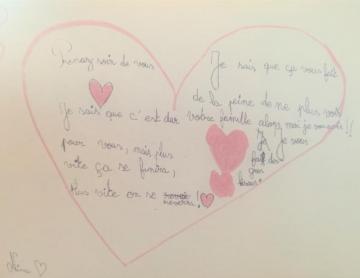 Prenez soin de vous
Je sais que c'est dur
pour vous, mais plus
vite ça se finira,
plus vite on se
reverra !
Je sais que ça vous fait
de la peine de ne plus voir
votre famille alors moi je vous le dis !!
Je vous
fait des
gros
bisous.